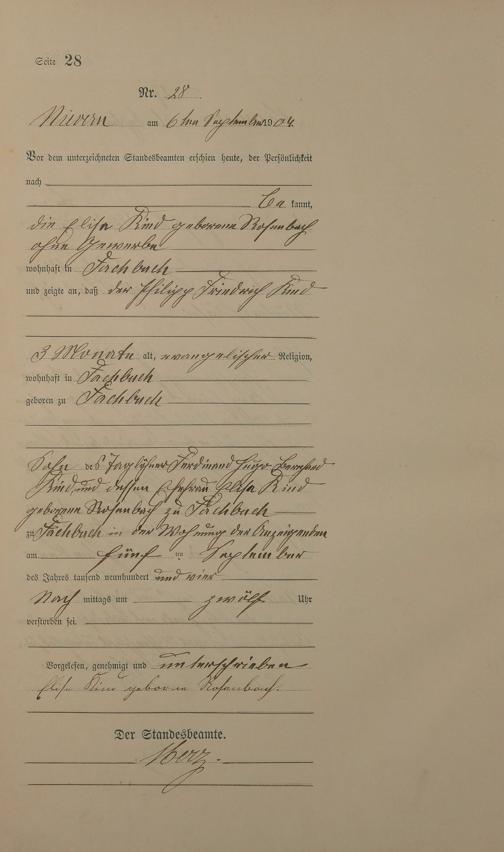 Seite 28
Nr. 28
Nievern am 6ten September 1904.
Vor dem unterzeichneten Standesbeamten erschien heute, der Persönlichkeit
nach
be kannt,
die Elisa Kind geborene Rosenbach
ohne Gewerbe
wohnhaft in Fachbach
und zeigte an, daß der Philipp Friedrich Kind
3 Monate alt, evangelischer Religion,
wohnhaft in Fachbach
geboren zu Fachbach
Sohn des Taglöhner Ferdinand Hugo Bernhard
Kind, und dessen Ehefrau Elisa Kind
geborene Rosenbach zu Fachbach
zu Fachbach in der Wohnung der Anzeigenden
am fünf ten September
des Jahres tausend neunhundert und vier
Nach mittags um zwölf Uhr
verstorben sei.
Vorgelesen, genehmigt und unterschrieben
Elisa Kind geborne Rosenbach.
Der Standesbeamte.
Merz.